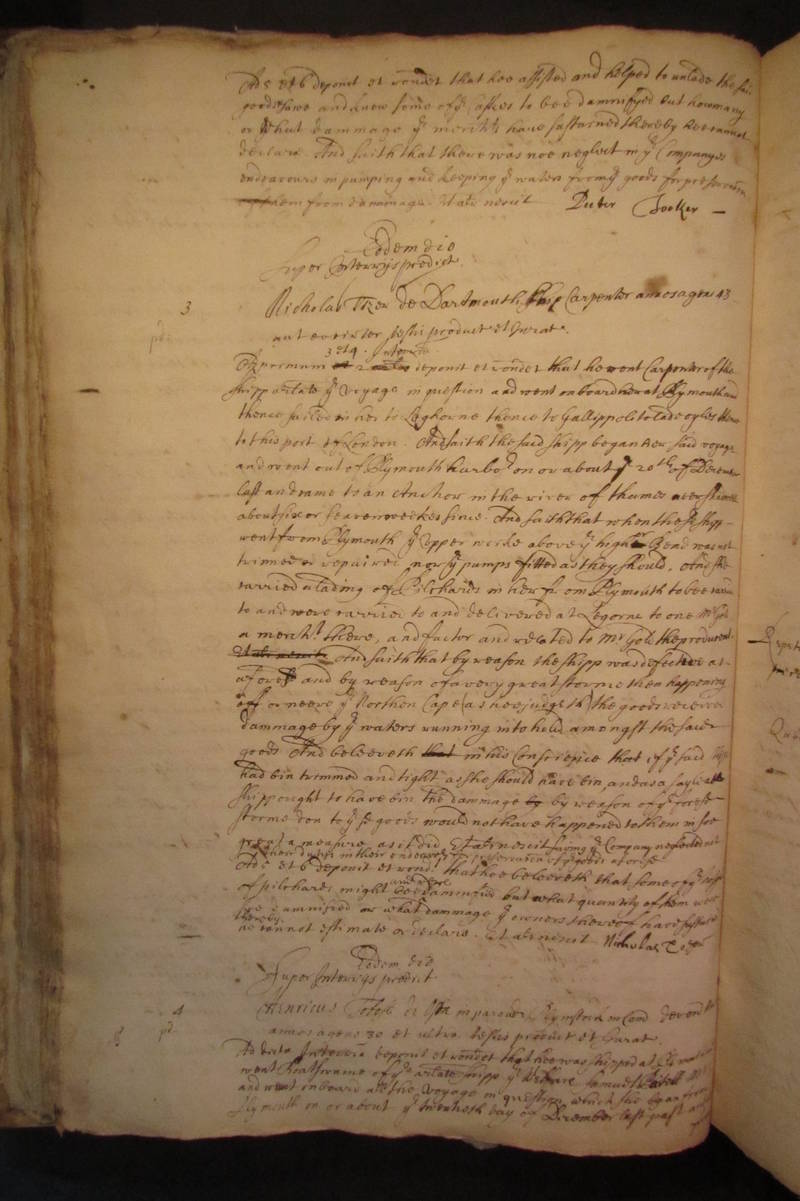 Ad 5 et 6 deponit et rendet that hee assisted and helped to unlade the said
goods sawe and knew some of ye Caskes to bee damnifyed but how many
or what dammage ye merchts have sustained thereby hee cannot
declare And saith that there was noe neglect in ye Companyes
endeavours in pumping and keeping ye waters from ye goods for preservacon
of them from dammage. Et alr nescit Peter Tooker
Eodem die
Super Interrijs predict.
3
Nicholas de Dartmouth Shipp Carpenter annos agens 43
aut eo circiter testis product et Jurat.
pd
Ad primum 3 et 4 Interria deponit et rendet that he went Carpenter of the
shipp arlate ye voyage in question and went onboard her at Plymouth and
thence sailed in her to Leghorne thence to Gallippoli to lade oyles thence
to this port of London. And saith the said shipp began her said voyage
and went out of Plymouth harbor on or about ye 20th of December
last and came to an Anchor in the river of Thames
about six or seaven weekes since. And saith that when the sd shipp
went from Plymouth ye upper worke above ye highr Bend was not
trimmed or repaired nor ye pumps fitted as they should. And she
carried a lading of Pilchards in her from Plymouth to bee carried
to and were carried to and delivered at Legorne to one Mr Gold
a mercht there, and factor and related to Mr Gold the producent.
Et alr nescit And saith that by reason the shipp was defective as
aforesd and by reason of a very great storme then happening
off or neere ye Northen Cape (as hee judgeth) the goods received
dammage by ye waters running into hold amongst the said
goods And beleeveth that in his Conscience that if ye said shipp
had bin trimmed and tight as she should have bin, and as a
shipp ought to have bin the dammage by by reason of ye foresd
storme don to ye sd goods would not have happened to them in soe
great a measure as it did Et alr nescit saving ye Company neglected not
their dutyes in their endeavors for preservacon of ye goods aforesd
Ad 5 et 6 deponit et rendet that hee beleeveth that some of ye
of pilchards might bee and were damnified but what quantity of them were
soe damnified or what dammage ye owners thereof have sustained
thereby he cannot estimate or declare. Et alr nescit Nicholas
Eodem die
Super Interrijs predict
4
Henricus de in parochia in Com Devon
annos agens 30 et ultra testis product et Jurat.
pd
Ad Interria deponit et rendet that hee was shipped at Plymouth
went Boatswaine of ye arlate shipp ye Samuel
and went onboard all the voyage in question which she began from
Plymouth on or about ye twentieth day of December last past